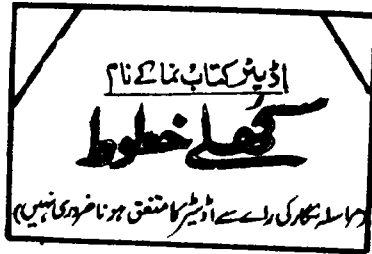 اڈیٹر کتاب نما کے نام
کھلے خطوط
(مراسلہ نگار کی رائے سے اڈیٹر کا متفق ہونا ضروری نہیں)